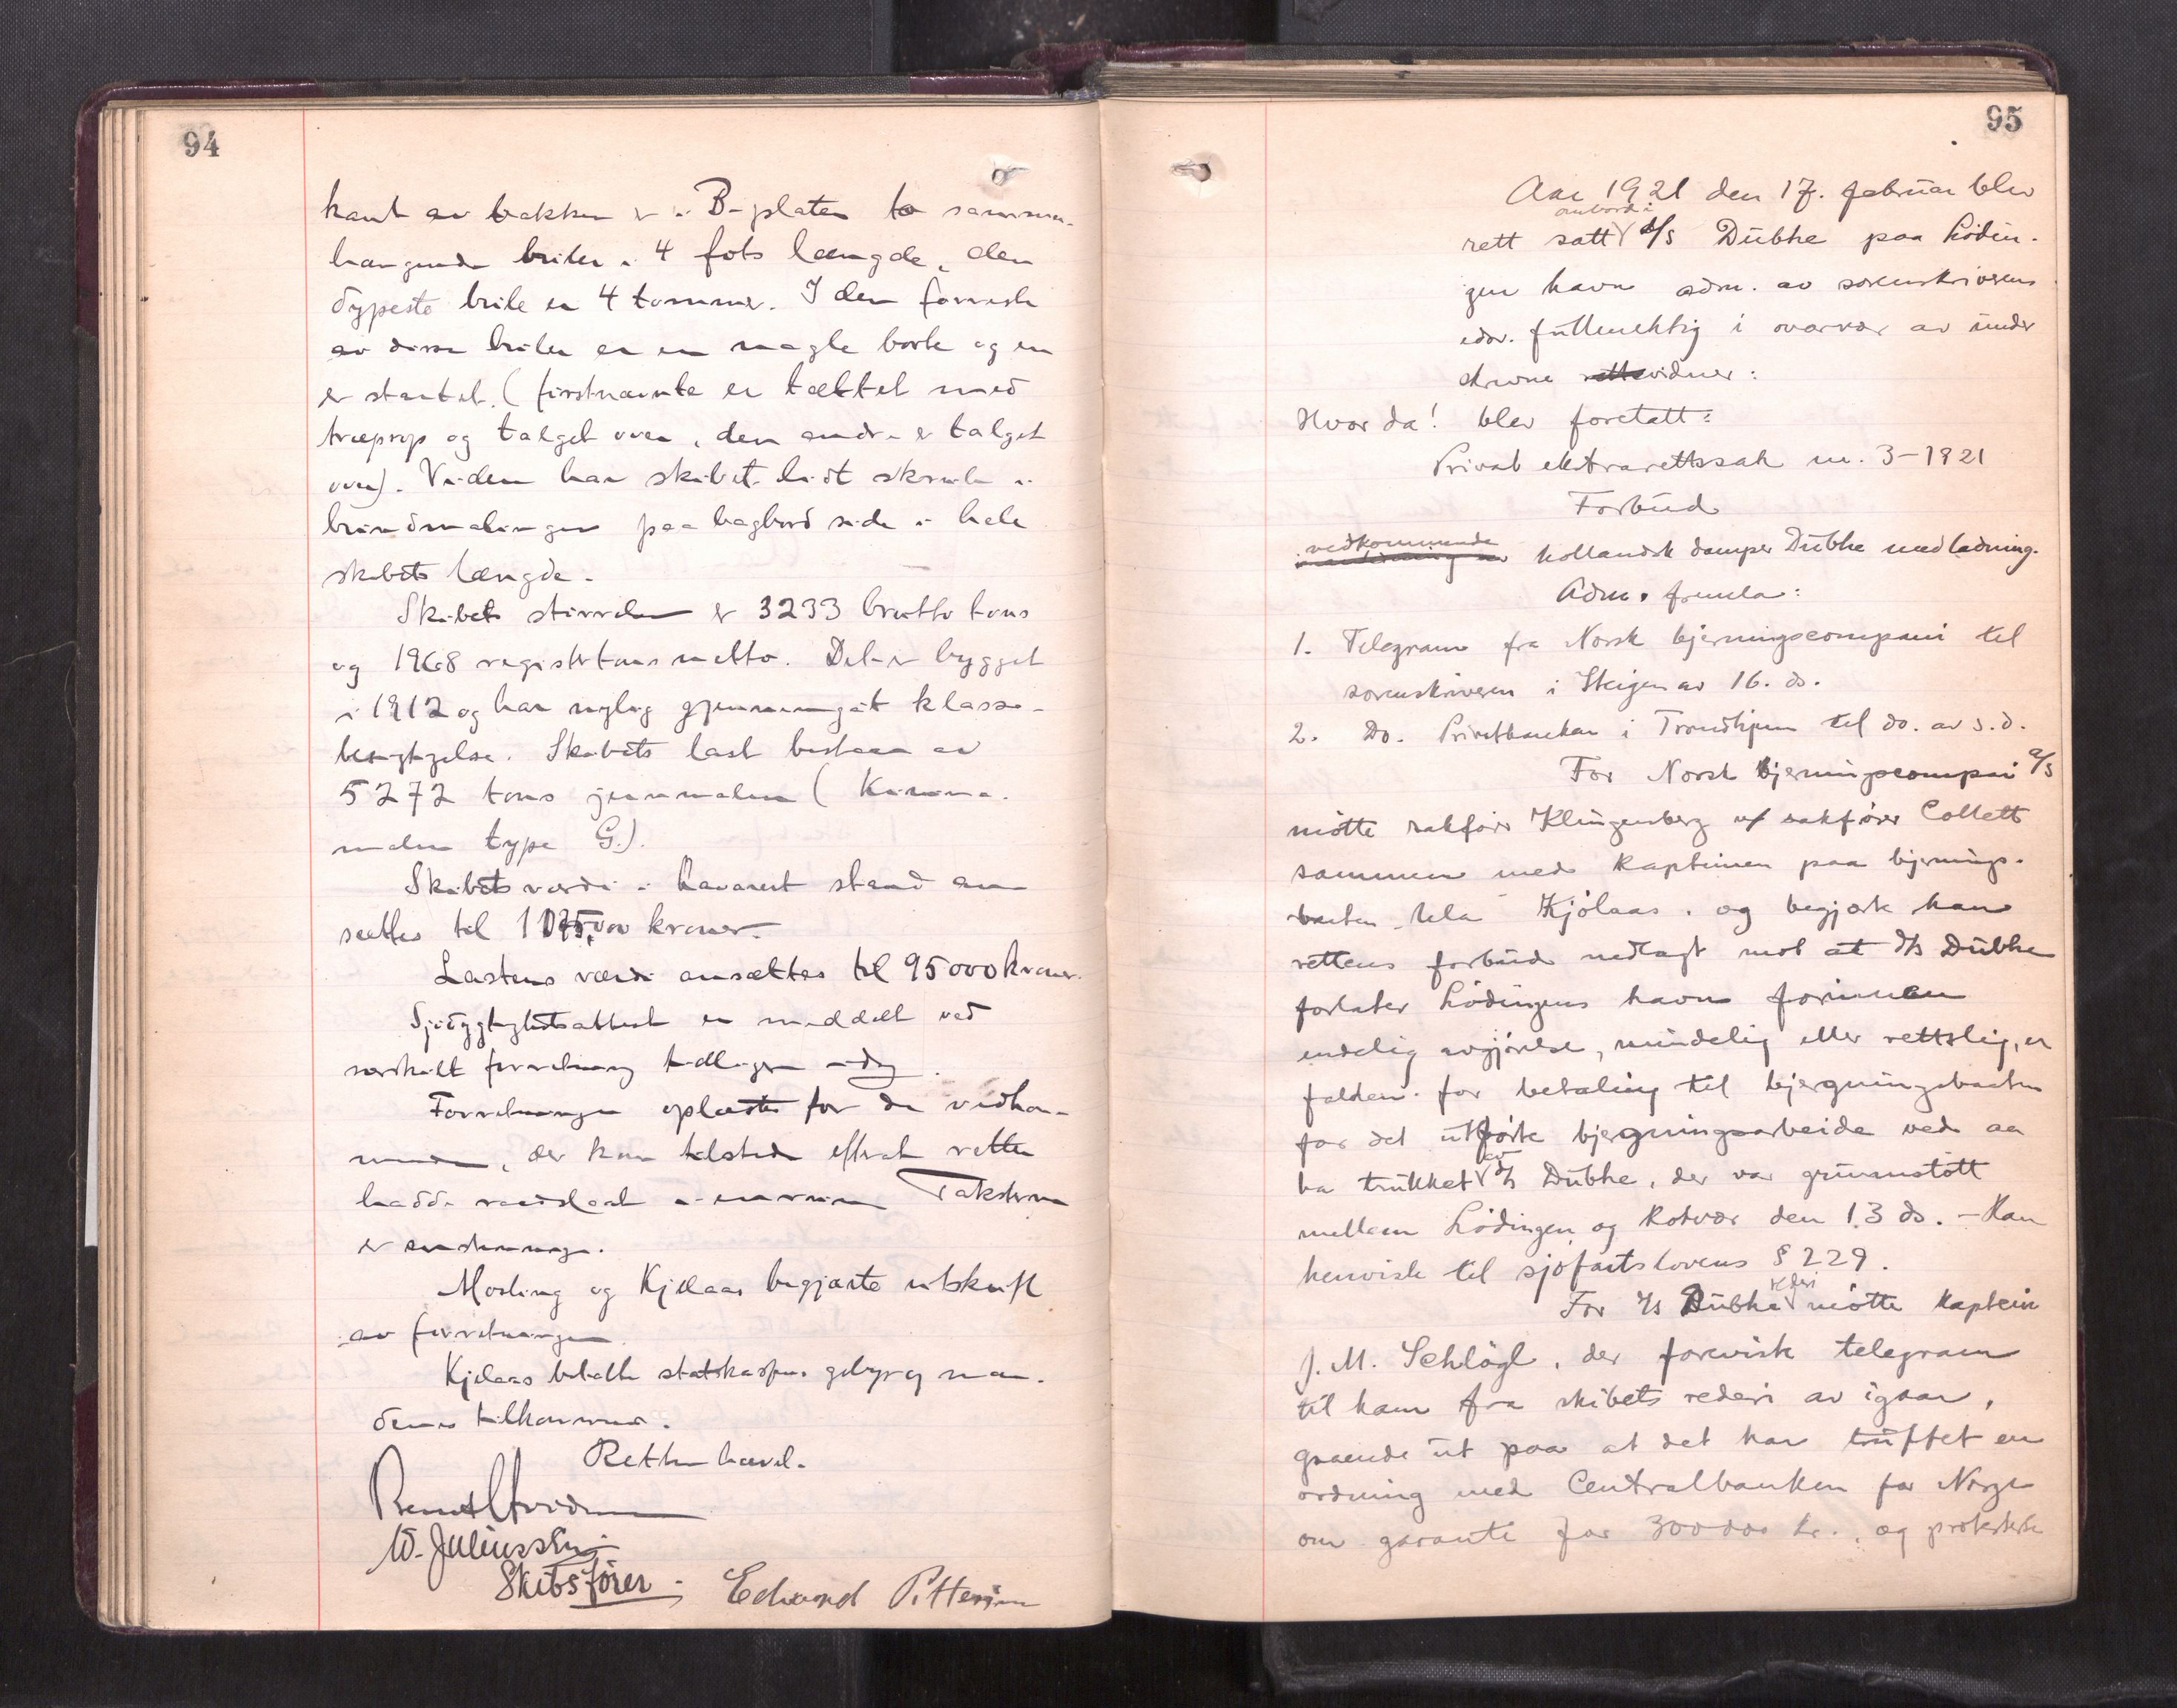 94
kant av bakken er i B-platen to sammen-
hængende buler i 4 fots længde, den
dypeste bule er 4 tommer. I den forreste
av disse buler er en nagle borte og en
er startet. (førstnævnte er tættet med
træprop og talget over, den andre er talget
over). Videre har skibet lidt skrub i
bundmalingen paa bagbord side i hele
skibets længde.
Skibets størrelse er 3233 brutto tons
og 1968 registertons netto. Det er bygget
i 1912 og har nylig gjennemgåt klasse-
besigtigelse. Skibets last bestaar av
5272 tons jernmalm (Kiruna-
malm type G.).
Skibets værdi i havarert stand an-
sættes til kroner.
Lastens værdi ansættes til 95000 kroner.
Sjødygtighetsattest er meddelt ved
særskilt forretning tidligere idag.
Forretningen oplæstes for de vedkom-
mende, der kom tilstede efterat retten
hadde raadslaat i enrum. Taksterne
er enstemmige.
Mosling og Kjølaas begjærte utskrift
av forretningen.
Kjølaas betalte statskassens gebyr og mæn-
denes tilkommende.
Retten hævet.
W. Juliussen
Skibsfører. Edvard Pettersen
95
Aar 1921 den 17. februar blev
rett satt ombord i d/s Dübhe paa Lødin-
gen havn adm. av sorenskriverens
edsv. fuldmektig i overvær av under
skrevne vidner:
Hvor da! blev foretatt:
Privat ekstrarettssak nr. 3-1921
Forbud
vedkommende hollandsk damper Dübhe med ladning.
Adm. fremla:
1. Telegram fra Norsk bjerningscompani til
sorenskriveren i Steigen av 16. ds.
2. Do. Privatbanken i Trondhjem til do. av s.d.
For Norsk Bjerningscompani a/s
møtte sakfører Klingenberg v/ sakfører Collett
sammen med kapteinen paa bjernings-
baaten Ula Kjølaas. og begjærte han
rettens forbud nedlagt mot at d/s Dübhe
forlater Lødingens havn forinnen
endelig avgjørelse, mindelig eller rettslig, er
falden for betaling til bjergningsbaaten
for det utførte bjergningsarbeide ved aa
ha trukket av d/s Dübhe, der var grunnstøtt
mellem Lødingen og Rotvær den 13 ds. - Han
henviste til sjøfartslovens § 229.
For d/s Dübhe rederi møtte kaptein
J. M. Schlögl, der foreviste telegram
til ham fra skibets rederi av igaar,
gaaende ut paa at det har truffet en
ordning med Centralbanken for Norge
om garanti for 300000 kr., og protesterte